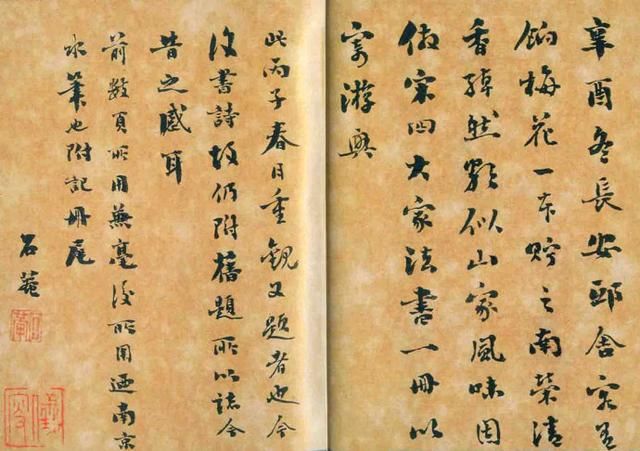 辛酉冬長安邸舍客有
餉梅花一本貯之南榮清
香綽然頗似山家風味因
倣宋四大家法書一冊以
寄游興
此丙子春日重觀又題者也今
後書詩故仍附舊題所以誌今
昔之感耳
前數頁所用兼毫後所用迺南京
水筆也附記冊尾
石菴